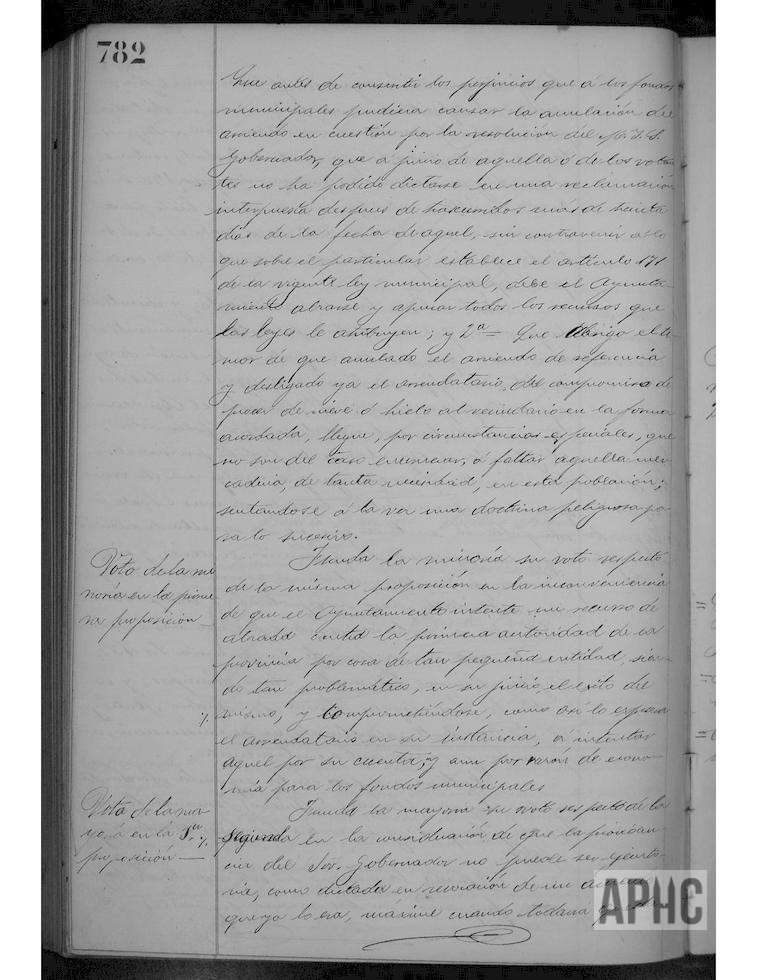 782
Que antes de consentir los perjuicios que á los fondos
municipales pudiera causar la anulación del
arriendo en cuestión por la resolución del M. I. S.
Gobernador, que a juicio de aquella ó de los votan
tes no ha podido dictarse en una reclamación
interpuesta despues de trascurridos más de treinta
dias de la fecha de aquel, sin contravenir á lo
que sobre el particular establece el artículo 171
de la vigente ley municipal, debe el Ayunta-
miento alzarse y apurar todos los recursos que
las leyes le atribuyen; y 2ª = Que abriga el te
mor de que anulado el arriendo de referencia
y desligado ya el arrendatario del compromiso de
proveer de nieve ó hielo al vecindario en la forma
acordada, llegue, por circunstancias especiales, que
no son del caso enumerar, á faltar aquella mer
cadería, de tanta necesidad, en esta población;
sentandose á la vez una doctrina peligrosa pa
ra lo sucesivo.
Voto de la mi
noría en la prime
ra proposición
Funda la minoría su voto respecto
de la misma proposición en la inconveniencia
de que el Ayuntamiento intente un recurso de
alzada contra la primera autoridad de la
provincia por cosa de tan pequeña entidad, sien-
do tan problemático, en su juicio, el exito del
mismo, y comprometiéndose, como así lo expresa
el arrendatario en su instancia, á intentar
aquel por su cuenta; y aun por razón de econo-
mía para los fondos municipales
Voto de la ma
yoría en la
proposición
Funda la mayoria su voto respecto de la
segunda en la consideración de que la providen-
cia del Sor. Gobernador no puede ser ejecuto-
ria, como dictada en revocación de un acuerdo
que ya lo era, máxime cuando todavia
APHC